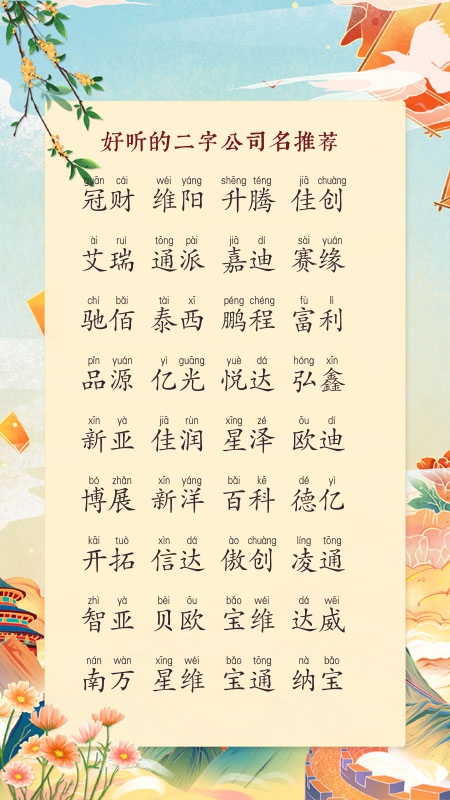 好听的二字公司名推荐
guān cái wéi yáng shēng téng jiā chuàng
冠财 维阳 升腾 佳创
ài ruì tōng pài jiā dí sài yuán
艾瑞 通派 嘉迪 赛缘
chí bǎi tài xī péng chéng fù lì
驰佰 泰西 鹏程 富利
pǐn yuán yì guāng yuè dá hóng xīn
品源 亿光 悦达 弘鑫
xīn yà jiā rùn xīng zé ōu dí
新亚 佳润 星泽 欧迪
bó zhǎn xīn yáng bǎi kē dé yì
博展 新洋 百科 德亿
kāi tuò xìn dá ào chuàng líng tōng
开拓 信达 傲创 凌通
zhì yà bèi ōu bǎo wéi dá wēi
智亚 贝欧 宝维 达威
nán wàn xīng wéi bǎo tōng nà bǎo
南万 星维 宝通 纳宝